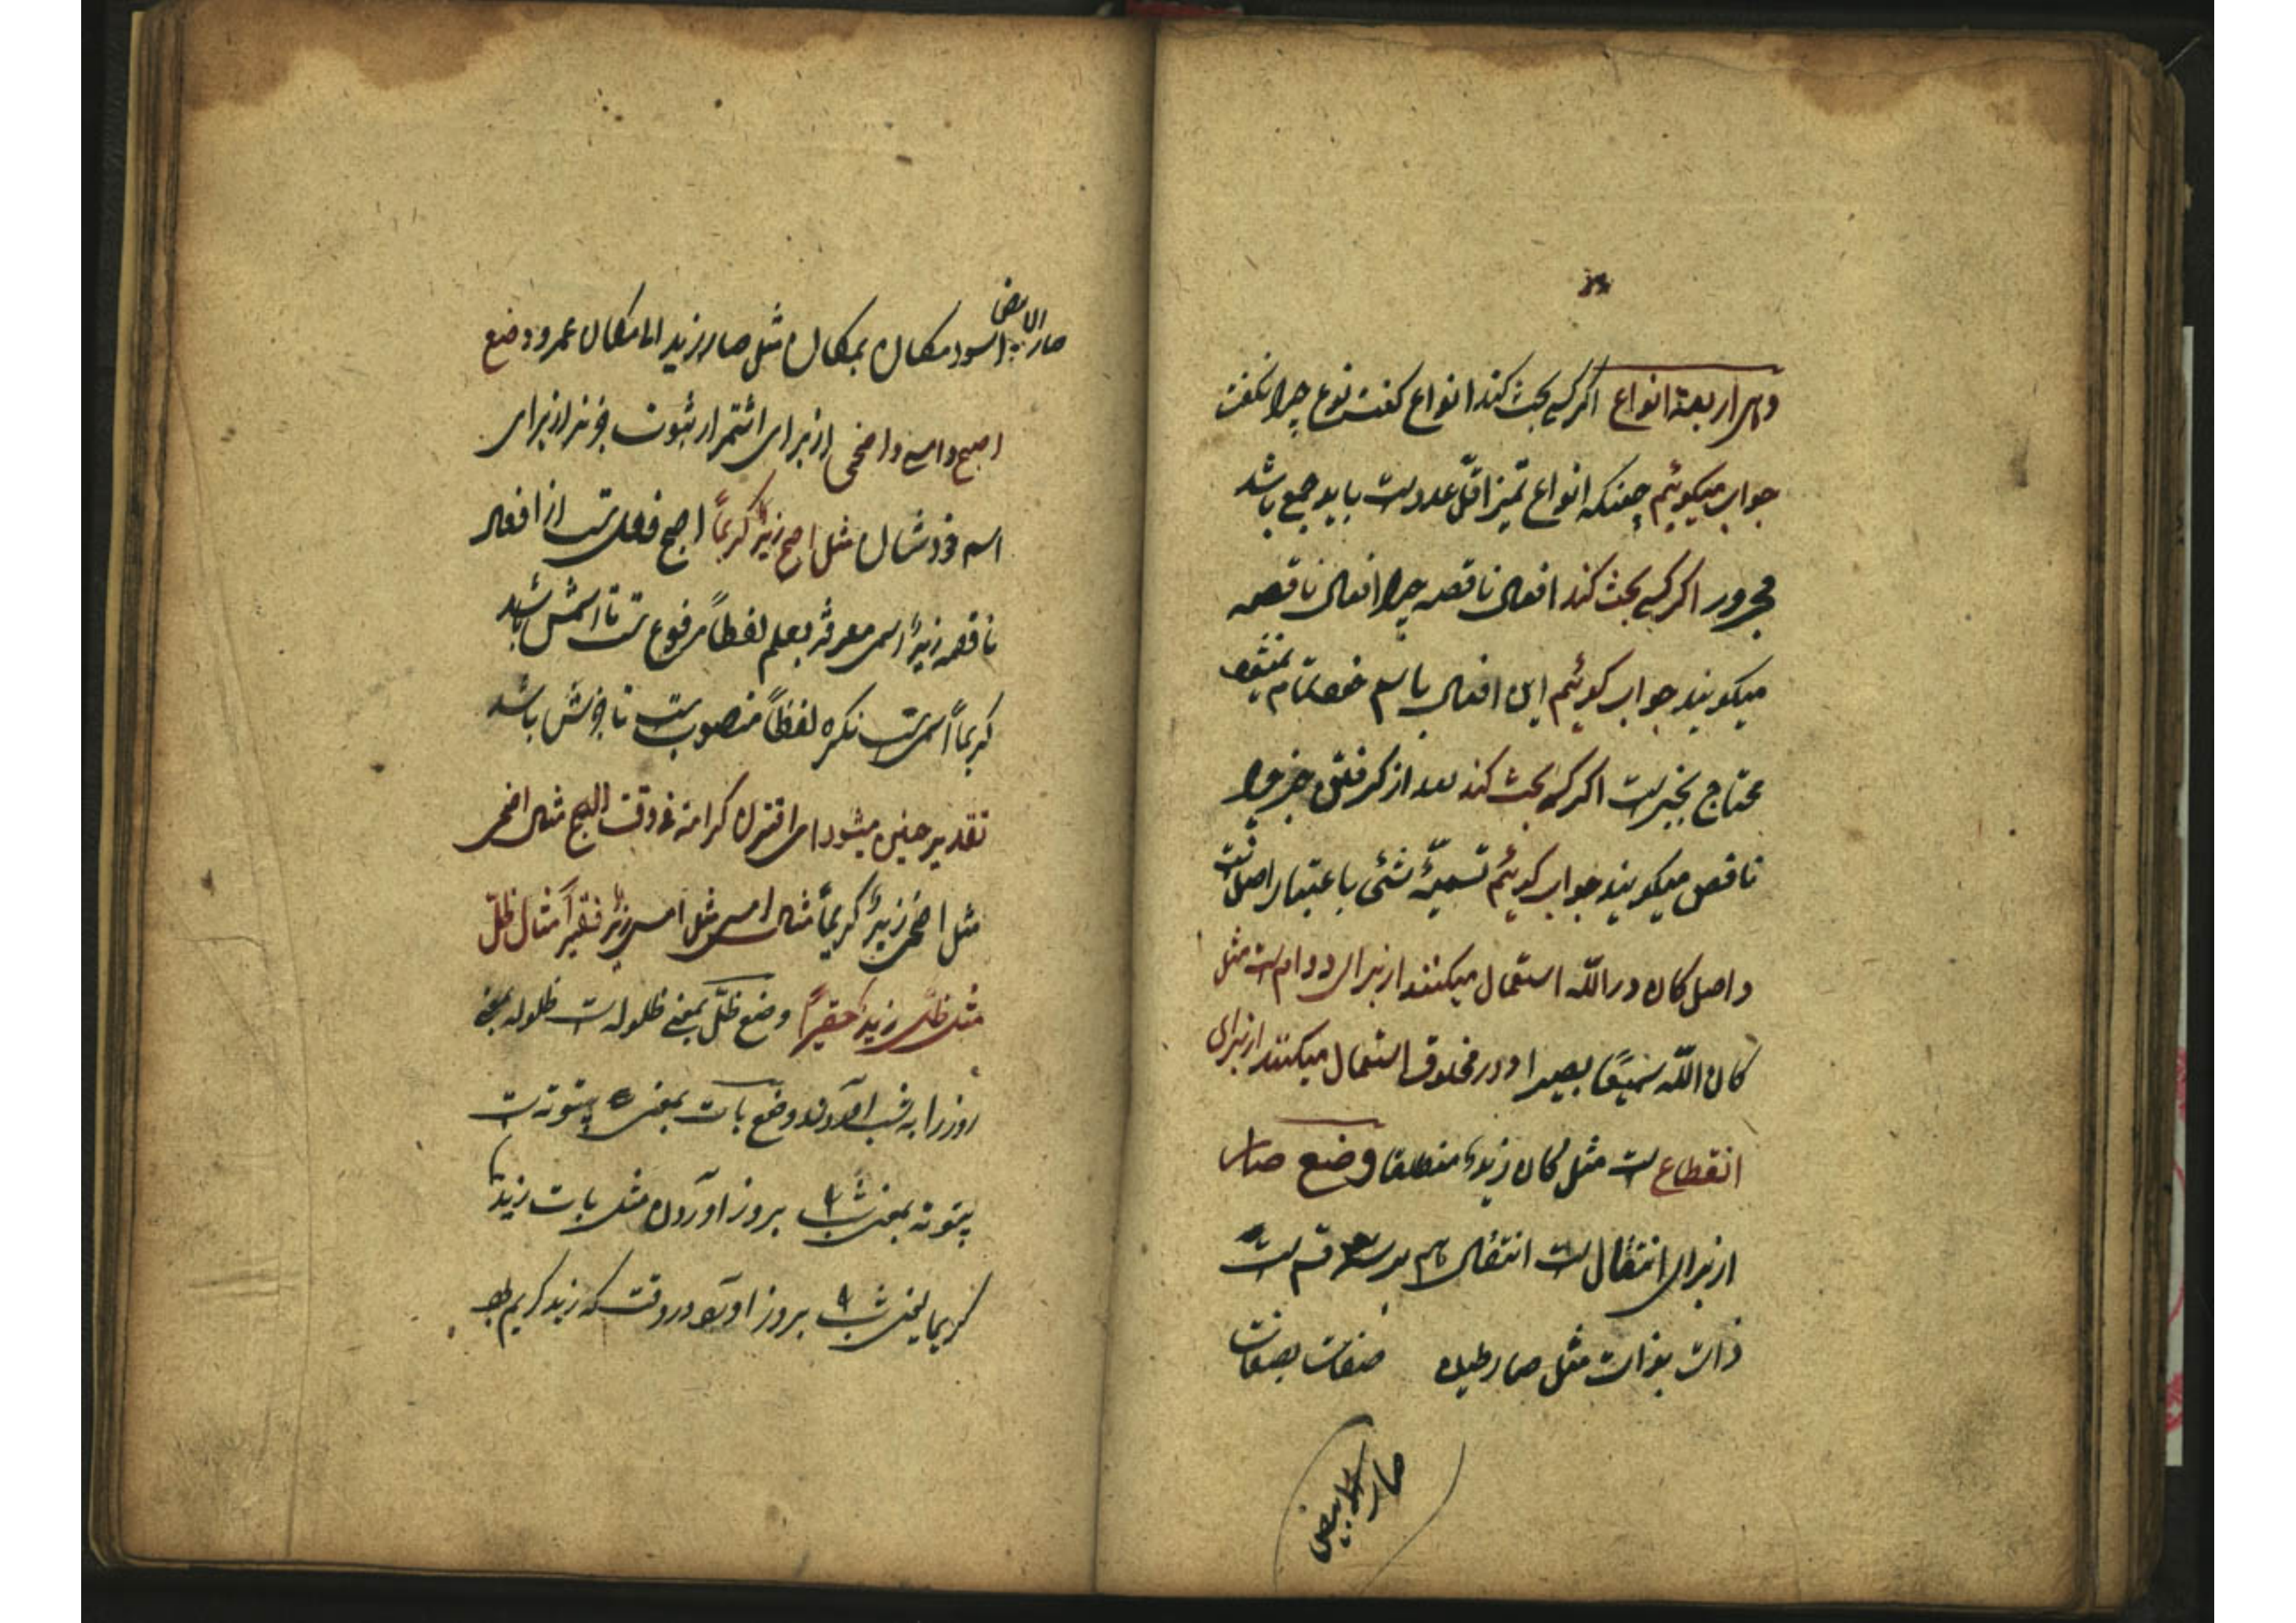 وهی اربعة انواع اکر کسی بحث کند انواع کفت نوع چرا نکفت
جواب میکوئیم چونکه انواع تمیز اقل عدد است باید جمع باشد
مجرور اکر کسی بحث کند افعال ناقصه چرا افعال ناقصه
میکویند جواب کوئیم این افعال باسم خود تمام نمیشود
محتاج بخبر است اکر کسی بحث کند بعد از کرفتن خبر چرا
ناقص میکویند جواب کوئیم تسمیهٔ شئی باعتبار اصل است
و اصل کان در الله استعمال میکنند از برای دوام است مثل
کان الله سمیعًا بصیرا و در مخلوق استعمال میکنند از برای
انقطاع است مثل کان زیدٌ منطلقا وضع صار
از برای انتقال است انتقال هم بر سه قسم است
ذات بذات مثل صار طین صفات بصفات
صار الابیض
صار الابیض اسود مکان بمکان مثل صار زید الی مکان عمرو وضع
اصبح وامسی واضحی از برای استمرار ثبوت خبر از برای
اسم خودشان مثل اصبح زیدٌ کریمًا اصبح فعلی است از افعال
ناقصه زیدٌ اسمی معرفه بعلم لفظاً مرفوع است تا اسمش باشد
کریماً اسمی است نکره لفظاً منصوب است تا خبرش باشد
تقدیر چنین میشود ای اقترن کرامة فی وقت الصبح مثال اضحی
مثل اضحی زیدٌ کریماً مثال امسی مثل امسی زیدٌ فقیراً مثال ظلّ
مثل ظلّ زیدٌ حقیراً وضع ظلّ بمعنی ظلوله است ظلوله بمعنی
روز را به شب آوردن وضع بات بمعنی بیتوته است
بیتوته بمعنی شب را بروز آوردن مثل بات زیدٌ
کریما یعنی شب را بروز آورد در وقت که زید کریم بود